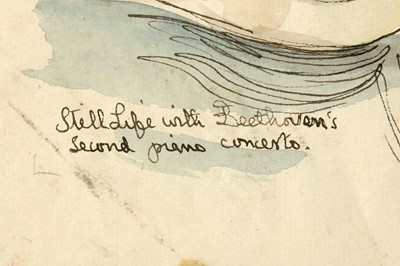 Still Life with Beethoven's
Second piano concerto.